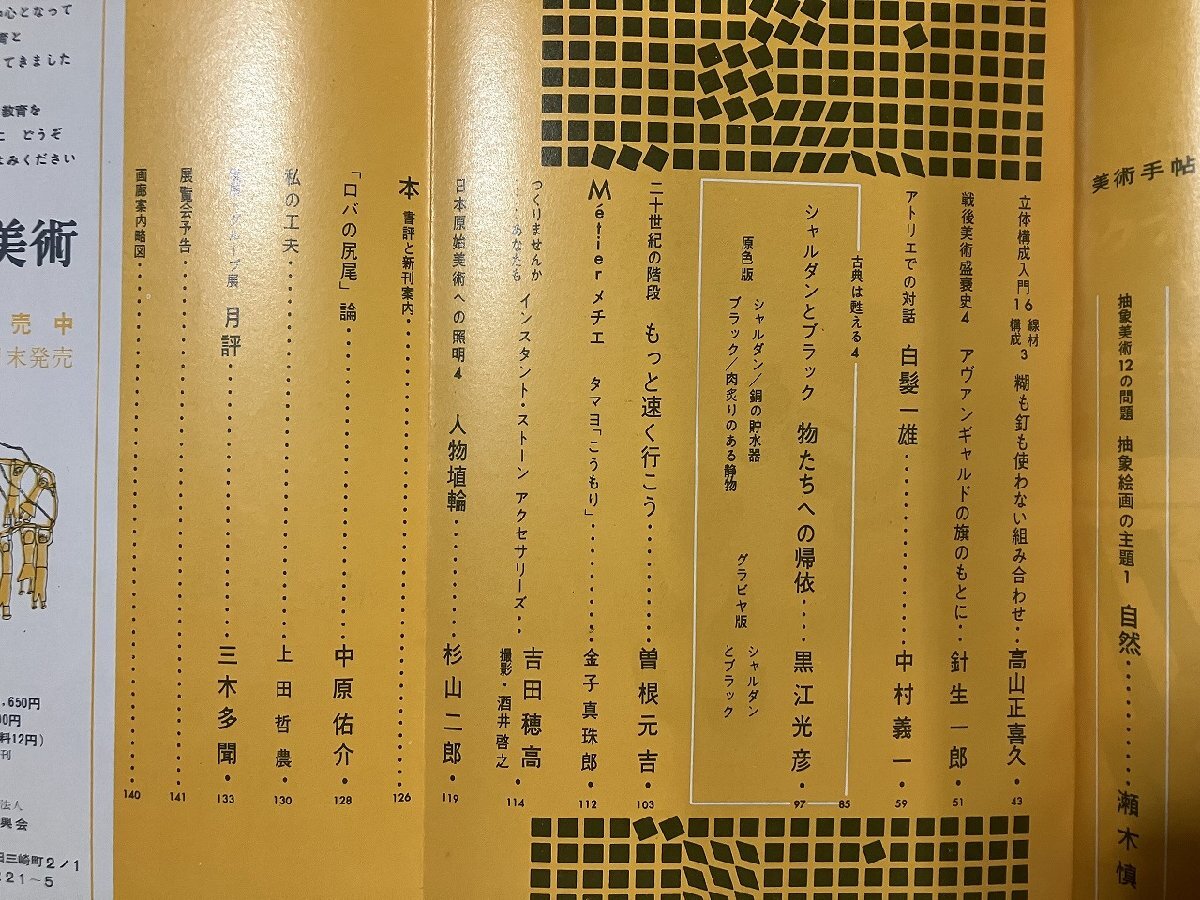 美術手帖
抽象美術12の問題 抽象絵画の主題1 自然 瀬木慎
立体構成入門16 線材構成3 糊も釘も使わない組み合わせ 高山正喜久 43
戦後美術盛衰史4 アヴァンギャルドの旗のもとに 針生一郎 51
アトリエでの対話 白髪一雄 中村義一 59
古典は甦える4 85
シャルダンとブラック 物たちへの帰依 黒江光彦 97
原色版 シャルダン/銅の貯水器
ブラック/肉炙りのある静物
グラビヤ版 シャルダンとブラック
二十世紀の階段 もっと速く行こう 曽根元吉 103
Métier メチエ タマヨ「こうもり」 金子真珠郎 112
つくりませんか
……あなたも インスタント・ストーン アクセサリーズ 吉田穂高 114
撮影・酒井啓之
日本原始美術への照明4 人物埴輪 杉山二郎 119
本 書評と新刊案内 126
「ロバの尻尾」論 中原佑介 128
私の工夫 上田哲農 130
グループ展 月評 三木多聞 133
展覧会予告 141
画廊案内略図 140
心となって
と
てきました
教育を
どうぞ
みください
美術
売中
末発売
,650円
00円
料12円)
刊
法人
興会
田三崎町2/1
221〜5